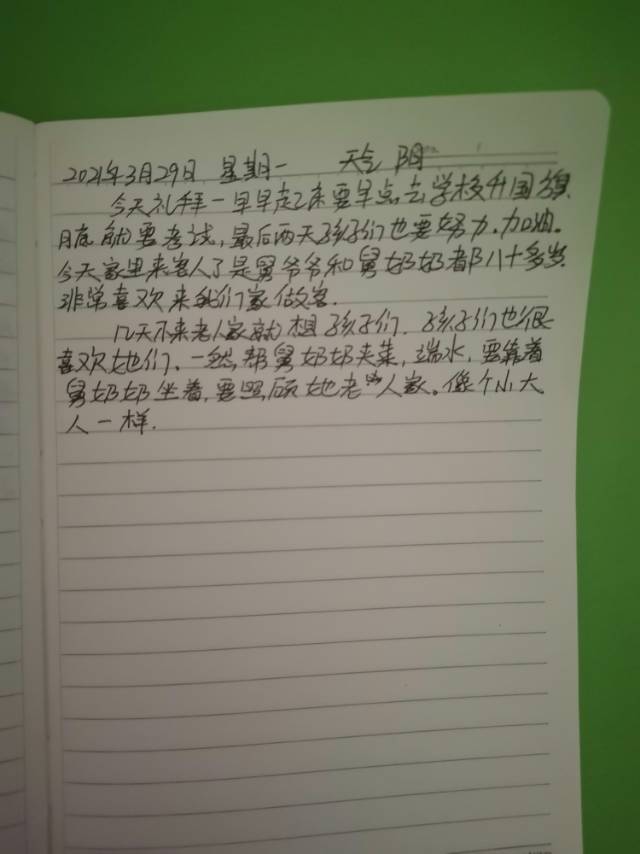 2021年3月29日 星期一 天气 阴
今天礼拜一早早起来要早点去学校升国旗.
月底就要考试,最后两天孩子们也要努力.加油.
今天家里来客人了是舅爷爷和舅奶奶都八十多岁.
非常喜欢来我们家做客.
几天不来老人家就想孩子们.孩子们也很
喜欢她们.一然帮舅奶奶夹菜,端水,要靠着
舅奶奶坐着,要照顾她老人家。像个小大
人一样.